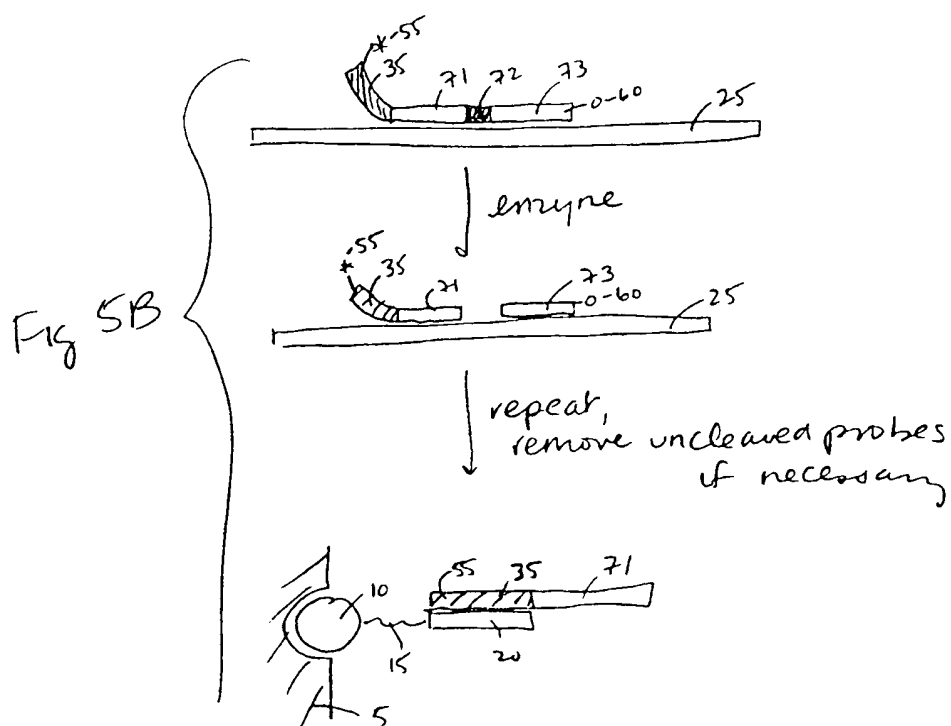 *-55
35
71
72
73
0-60
25
enzyme
*-55
35
71
73
0-60
25
Fig 5B
repeat,
remove uncleaved probes
if necessary
55
35
71
10
15
20
5